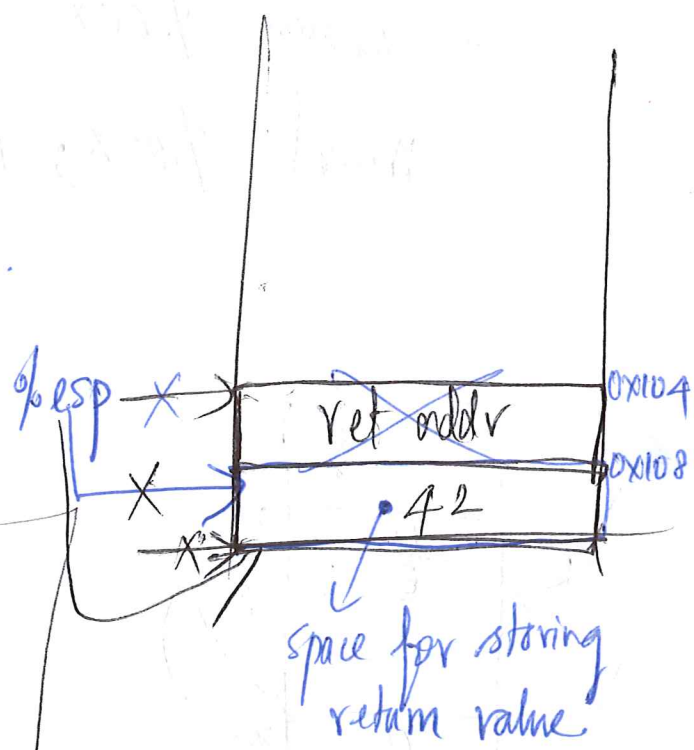 %esp
ret addr
0x104
0x108
42
space for storing
return value